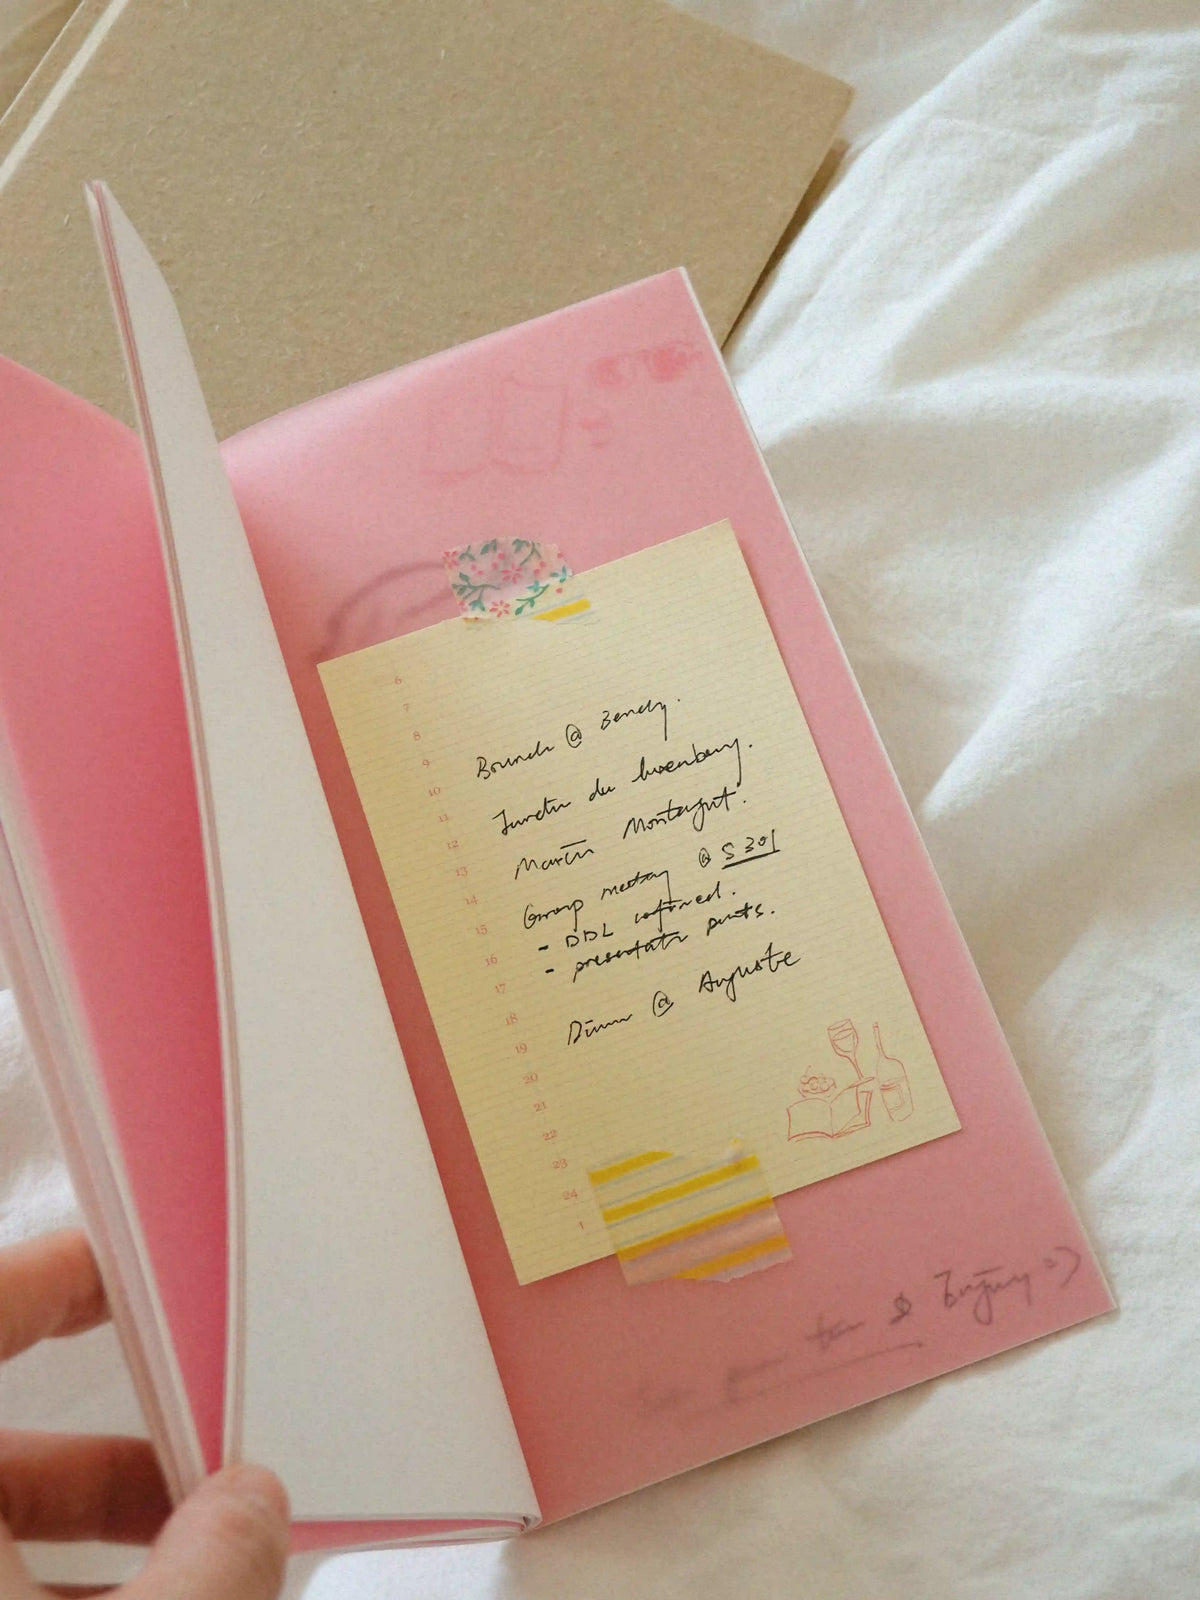 6
7
8
9
10
11
12
13
14
15
16
17
18
19
20
21
22
23
24
1
Brunch @
Jardin du luxembourg.
Martin Montagut.
Group meeting @ S301
- DDL confirmed.
- presentatn points.
Dinner @ Auguste